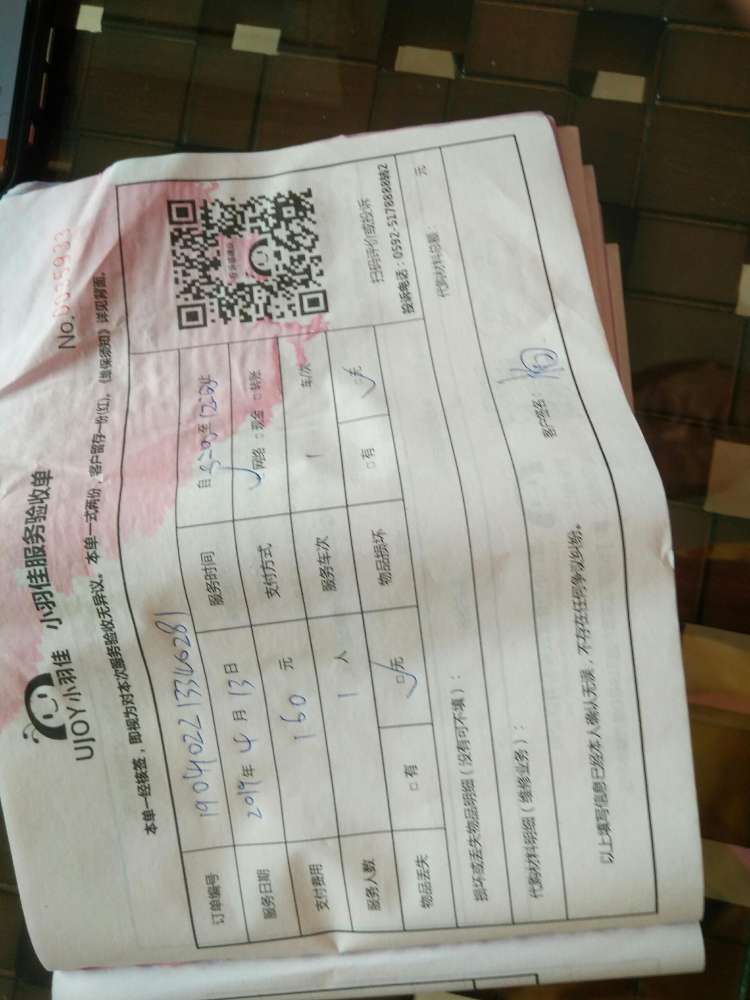 UJOY小羽佳 小羽佳服务验收单
No.0035933
本单一经核签，即视为对本次服务验收无异议。本单一式两份，客户留存一份(红)。《维保须知》详见背面。
订单编号 190402213346281
服务日期 2019年4月13日 服务时间 自 至
支付费用 160 元 支付方式 ✓网络 □现金 □转账
服务人数 1 人 服务车次 1 车/次
物品丢失 □有 ☑无 物品损坏 □有 ☑无
扫码评价或投诉
投诉电话：0592-5178888转2
损坏或丢失物品明细（没有可不填）：
代购材料明细（维修业务）： 代购材料总额： 元
以上填写信息已经本人确认无误，不存在任何争议纠纷。
客户签名：